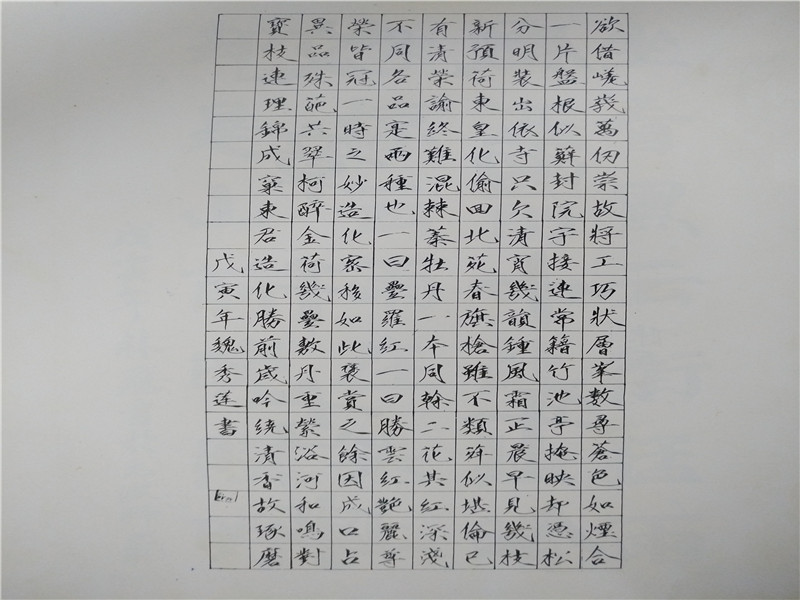 欲借嵯峩萬仞崇故將工巧狀層峯數尋蒼色如煙合
一片盤根似蘚封院宇接連常籍竹池亭掩映却憑松
分明裝出依寺只欠清宵幾韻鍾風霜正晨早見幾枝
新預荷東皇化偷回北苑春旗槍雖不類似堪倫已
有清榮諭終難混棘蓁牡丹一本同榦二花其紅深淺
不同名品寔兩種也一曰疊羅紅一曰勝雲紅艷麗尊
榮皆冠一時之妙造化密移如此褒賞之餘因成口占
異品殊葩共翠柯醉金荷幾疊數丹重縈浴河和鳴對
寳枝連理錦成窠東君造化勝前歲吟繞清香故琢磨
戊寅年魏秀蓮書